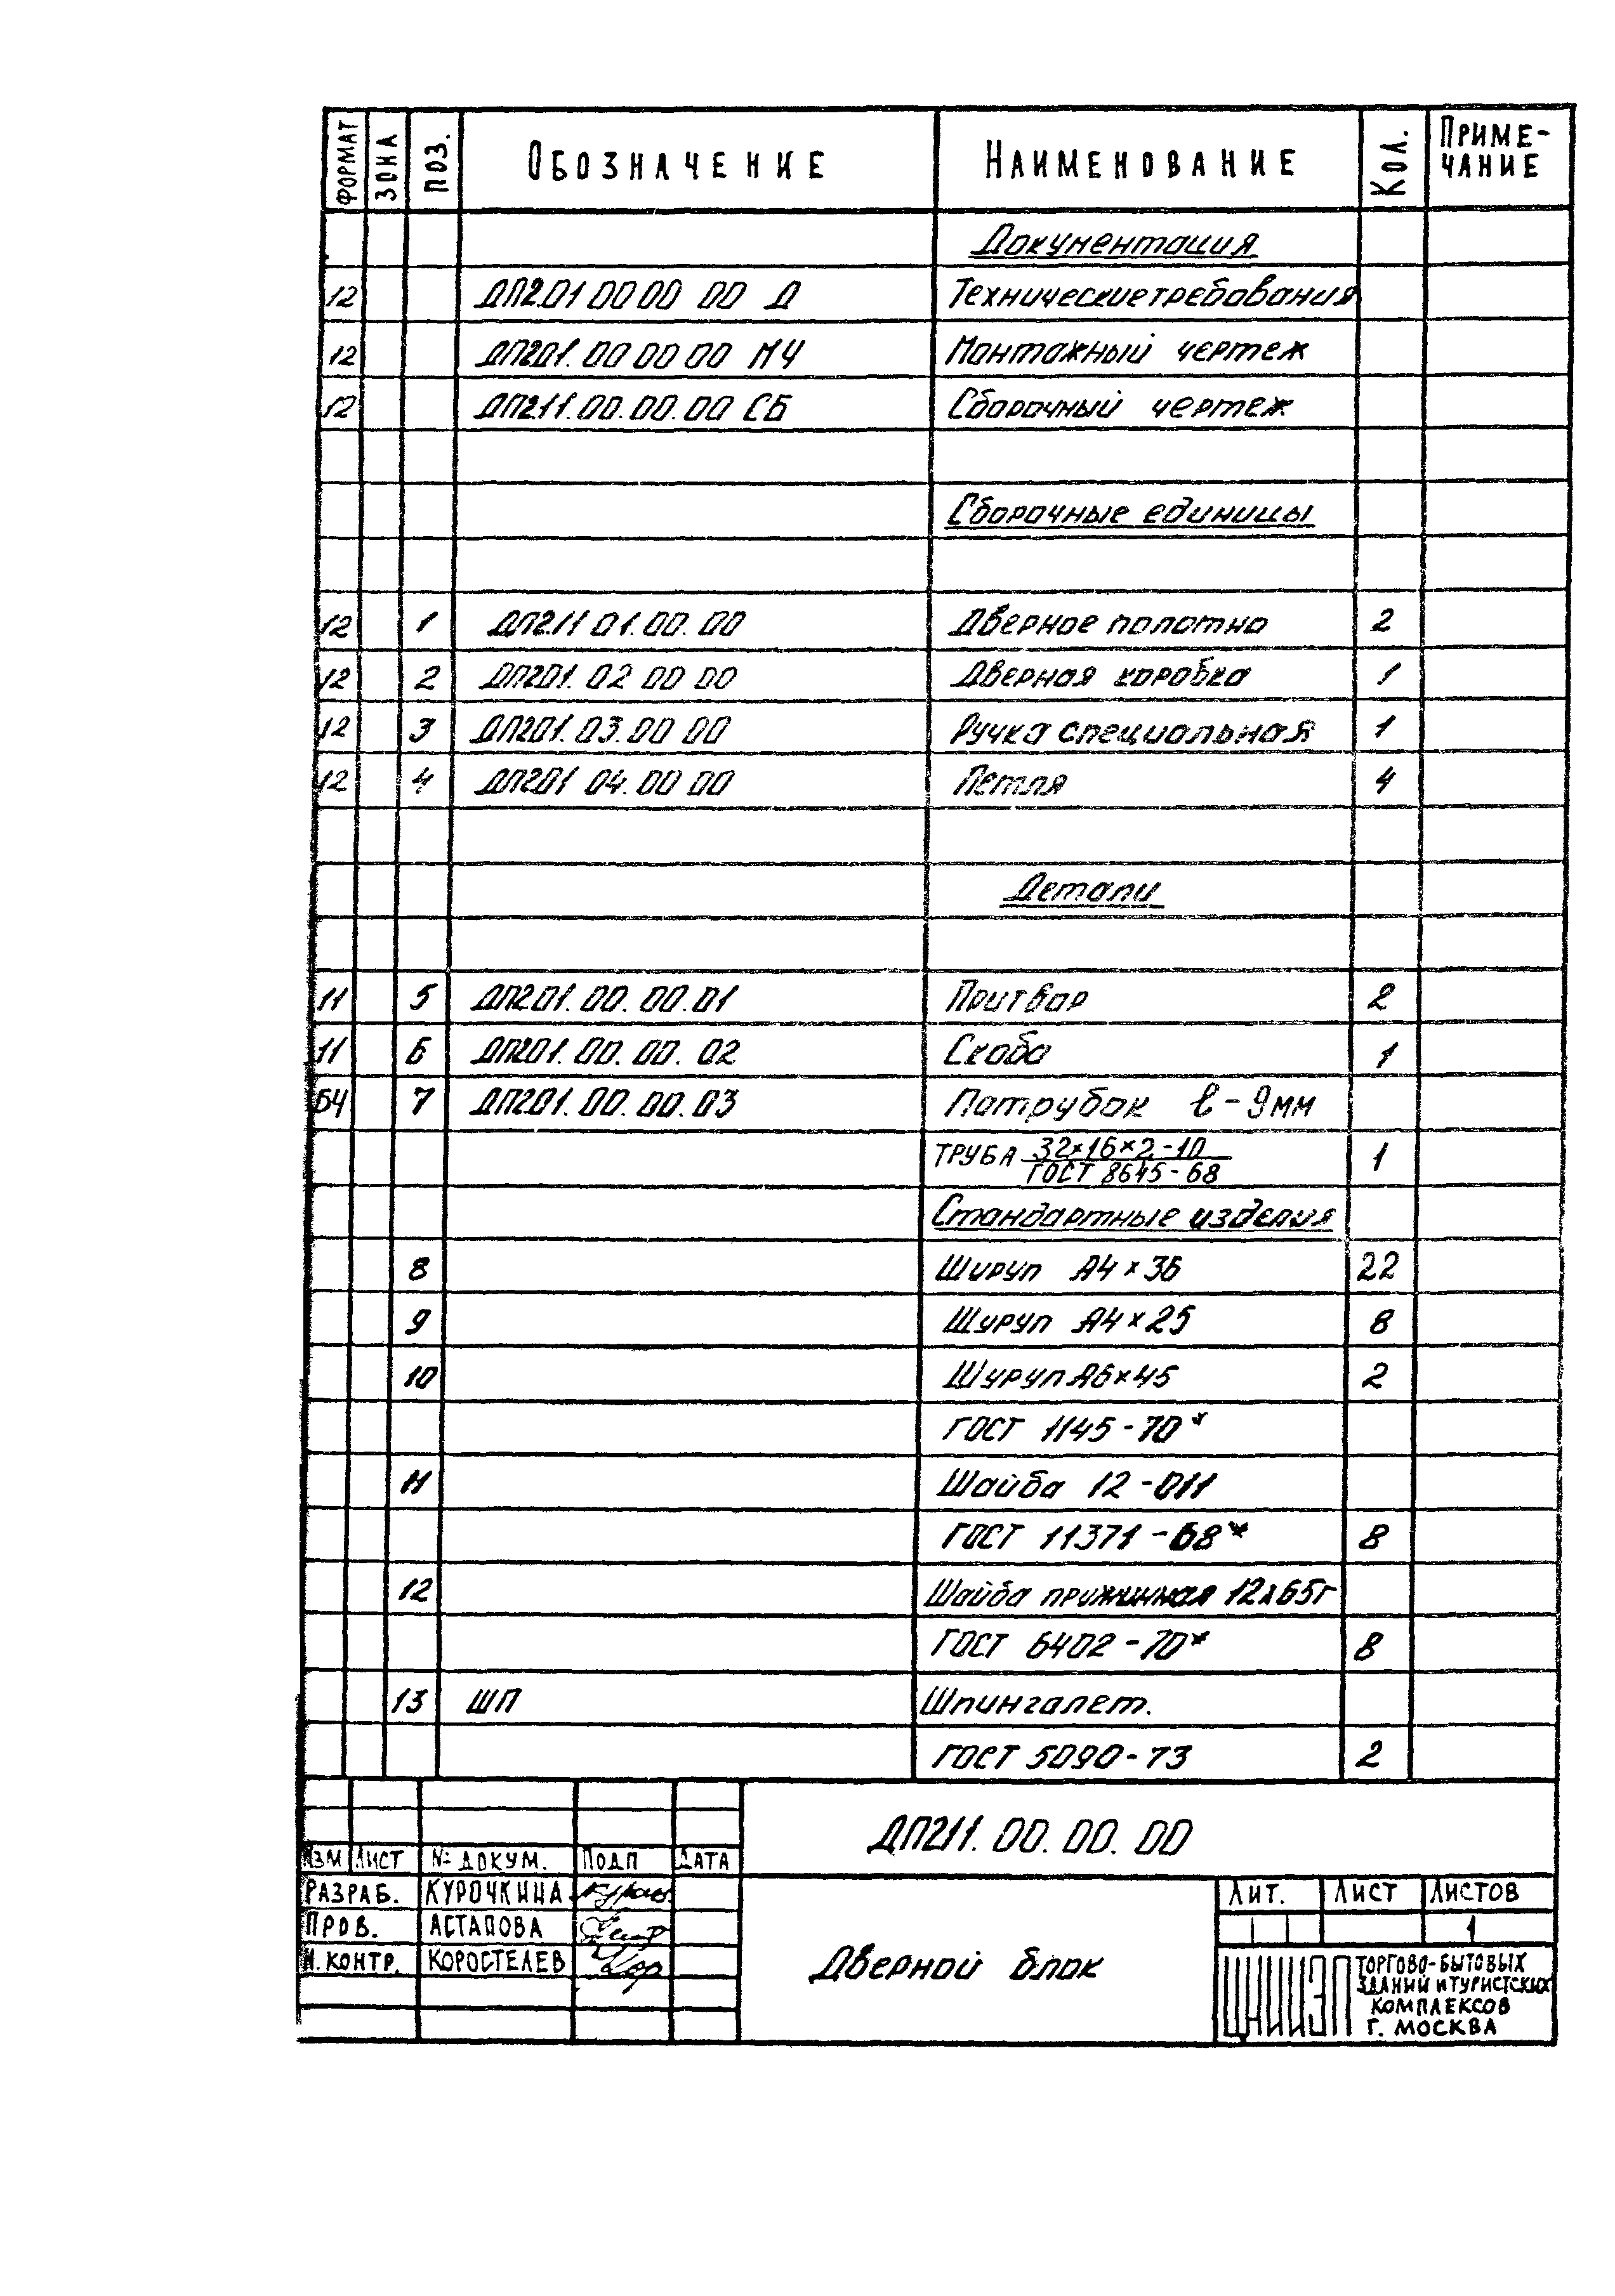 ФОРМАТ ЗОНА ПОЗ. ОБОЗНАЧЕНИЕ НАИМЕНОВАНИЕ КОЛ. ПРИМЕ-
ЧАНИЕ
Документация
12 ДП201 00 00 00 Д Технические требования
12 ДП201. 00 00 00 МЧ Монтажный чертеж
12 ДП211.00.00.00 СБ Сборочный чертеж
Сборочные единицы
12 1 ДП211 01.00.00 Дверное полотно 2
12 2 ДП201. 02 00 00 Дверная коробка 1
12 3 ДП201. 03.00 00 Ручка специальная 1
12 4 ДП201 04.00 00 Петля 4
Детали
11 5 ДП201. 00. 00.01 Притвор 2
11 6 ДП201. 00. 00. 02 Скоба 1
БЧ 7 ДП201. 00. 00. 03 Патрубок ℓ-9мм
ТРУБА 32×16×2-10
ГОСТ 8645-68 1
Стандартные изделия
8 Шуруп А4×36 22
9 Шуруп А4×25 8
10 Шуруп А6×45 2
ГОСТ 1145-70*
11 Шайба 12-011
ГОСТ 11371-68* 8
12 Шайба прижимная 12х65г
ГОСТ 6402-70* 8
13 ШП Шпингалет.
ГОСТ 5090-73 2
ДП211. 00. 00. 00
ИЗМ ЛИСТ № ДОКУМ. ПОДП ДАТА
РАЗРАБ. КУРОЧКИНА
ПРОВ. АСТАПОВА
Н. КОНТР. КОРОСТЕЛЕВ
Дверной блок
ЛИТ. ЛИСТ ЛИСТОВ
1
ЦНИИЭП ТОРГОВО-БЫТОВЫХ
ЗДАНИЙ И ТУРИСТСКИХ
КОМПЛЕКСОВ
Г. МОСКВА